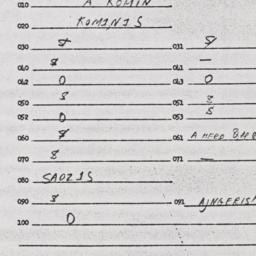 010 A KOMIN
020 KOMINIS
030 8 031 8
040 8 041 —
042 0 043 0
050 8 051 8
052 0 053 8
060 8 061
070 8 071 —
080 SAOZIS
090 8 091
100 0